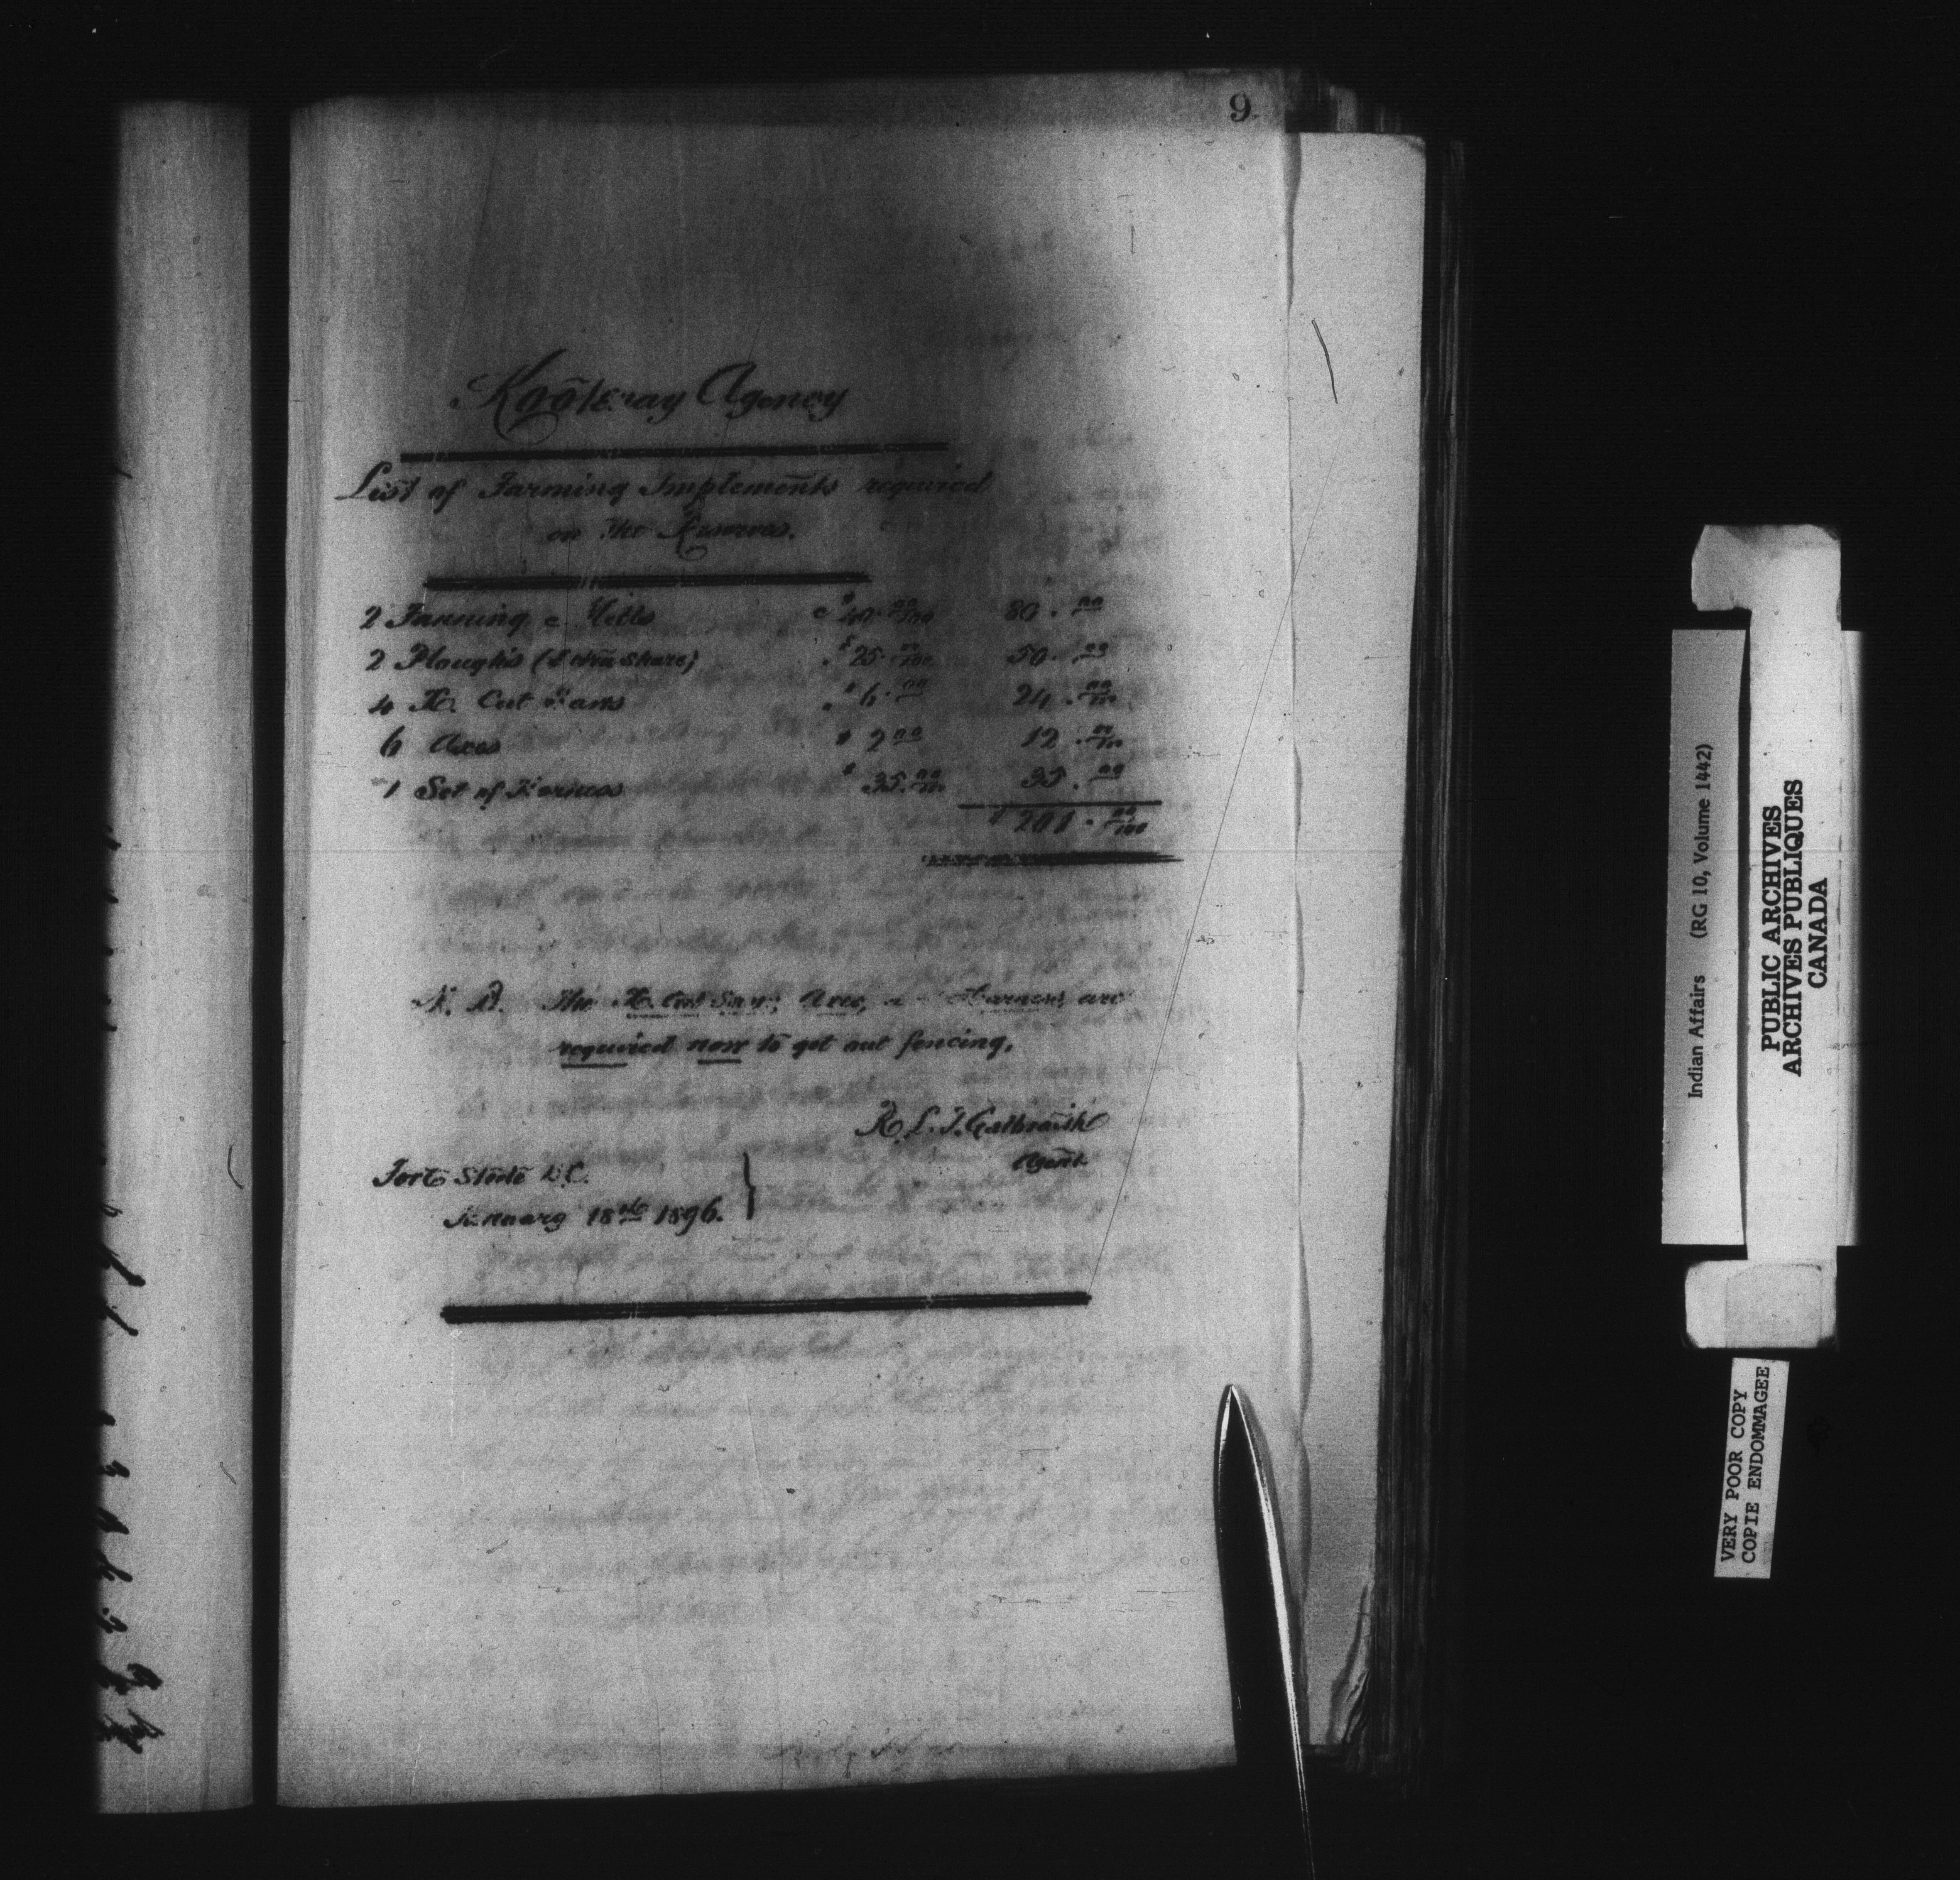 9
Kootenay Agency
List of Farming Implements required
on the Reserves.
2 Fanning Mills @ $40.00/100 80.00
2 Ploughs (& extra share) " $25.00/100 50.00
4 X Cut Saws " $6.00 24.00/100
6 Axes $ 2 00 12.00/100
1 Set of Harness $ 35.00/100 35.00
$ 201.00/100
N.B. The X Cut Saws, Axes, & Harness, are
required now to get out fencing.
R. L. T. Galbraith
Agent.
Fort Steele B.C.
January 18th 1896.
Indian Affairs (RG 10, Volume 1442)
PUBLIC ARCHIVES
ARCHIVES PUBLIQUES
CANADA
VERY POOR COPY
COPIE ENDOMMAGEE